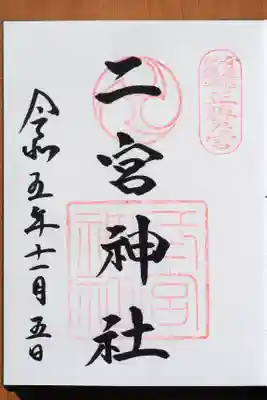 二宮神社
令和五年十一月五日